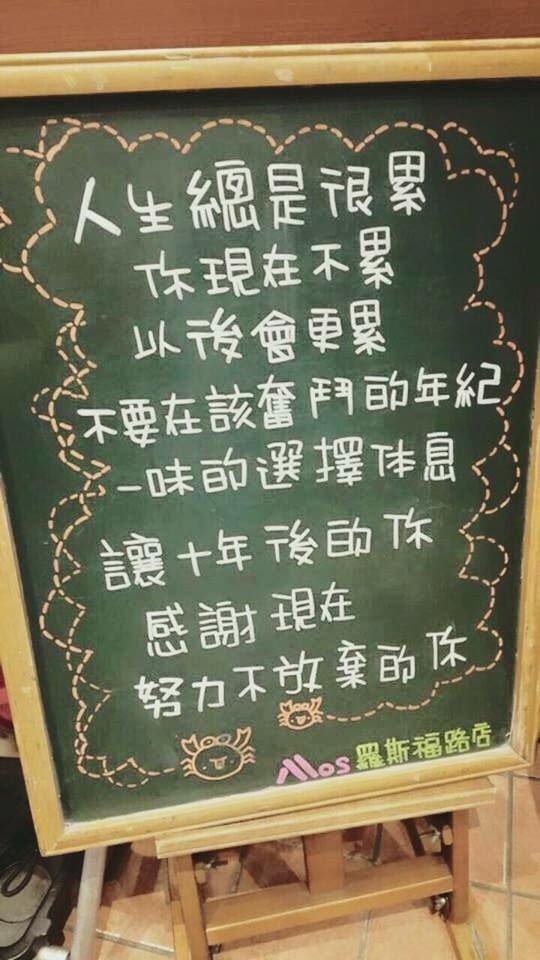 人生總是很累
你現在不累
以後會更累
不要在該奮鬥的年紀
一味的選擇休息
讓十年後的你
感謝現在
努力不放棄的你
Mos 羅斯福路店